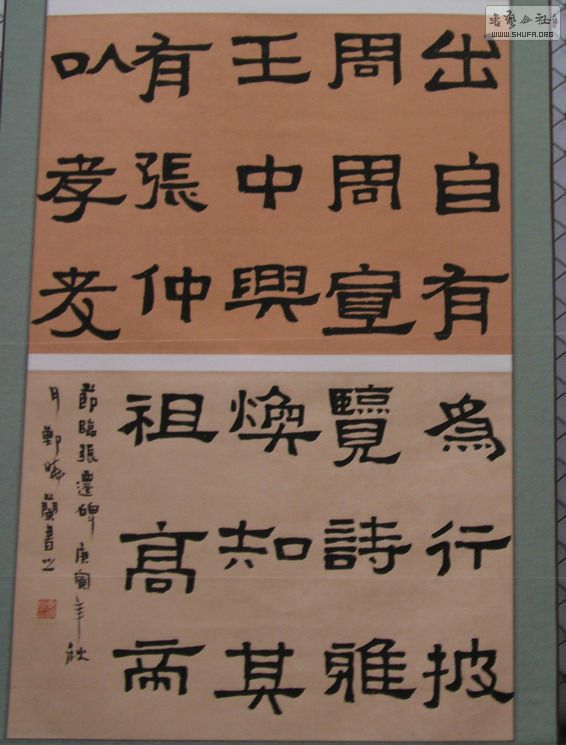 出自有
周周宣
王中興
有張仲
以孝友
爲行披
覽詩雅
煥知其
祖高帝
節臨張遷碑 庚寅年秋
月鄭曉蘭書之
書藝公社
WWW.SHUFA.ORG